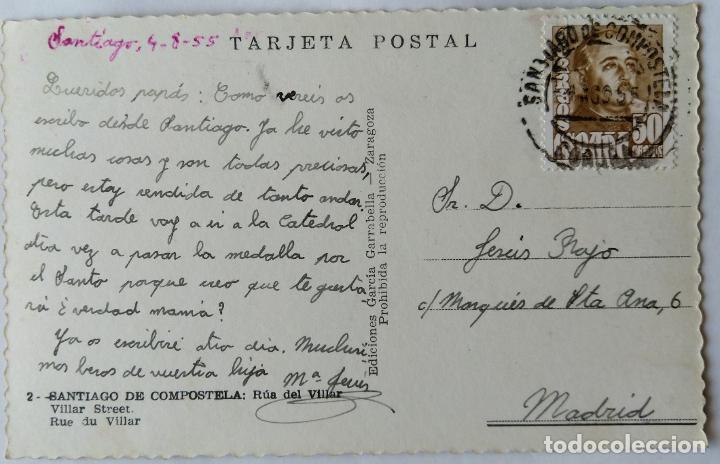 Santiago, 4-8-55
TARJETA POSTAL
Queridos papás: Como vereis os
escribo desde Santiago. Ya he visto
muchas cosas y son todas preciosas,
pero estoy rendida de tanto andar.
Esta tarde voy a ir a la Catedral
otra vez a pasar la medalla por
el Santo porque creo que te gusta
rá ¿verdad mamá?
Ya os escribiré otro dia. Muchisi
mos besos de vuestra hija
Mª Jesús
2 - SANTIAGO DE COMPOSTELA: Rúa del Villar
Villar Street.
Rue du Villar
Ediciones García Garrabella — Zaragoza
Prohibida la reproducción
SANTIAGO DE COMPOSTELA
CORREOS
50
Sr. D.
Jesús Rojo
c/ Marqués de Sta Ana, 6
Madrid
todocoleccion
todocoleccion.net